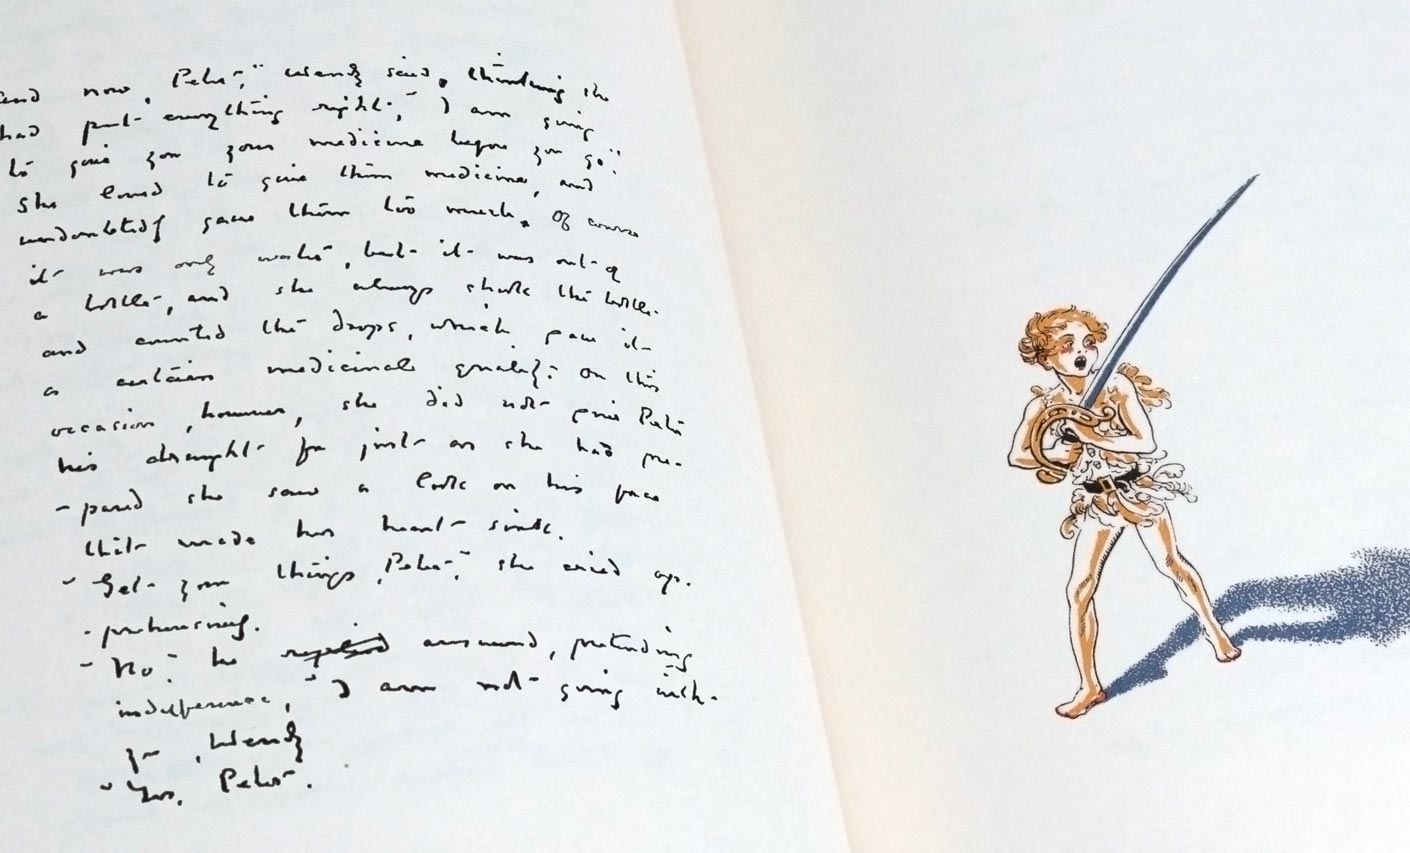 and now, Peter," Wendy said, thinking she
had put everything right, "I am going
to give you your medicine before you go."
She loved to give them medicine, and
undoubtedly gave them too much. Of course
it was only water, but it was out of
a bottle, and she always shook the bottle
and counted the drops, which gave it
a certain medicinal quality. On this
occasion, however, she did not give Peter
his draught for just as she had pre-
-pared she saw a look on his face
that made her heart sink.
"Get your things, Peter," she cried ap-
-prehensively.
"No," he replied answered, pretending
indifference, "I am not going with
you, Wendy
"Yes, Peter."